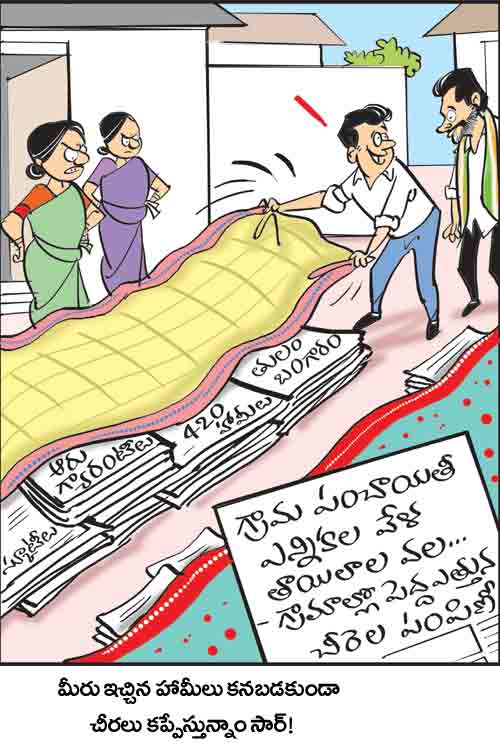 తులం
బంగారం
420
హామీలు
ఆరు
గ్యారంటీలు
స్కూటీలు
గ్రామ పంచాయితీ
ఎన్నికల వేళ
తాయిలాల వల...
- గ్రామాల్లో పెద్దఎత్తున
చీరెల పంపిణీ
మీరు ఇచ్చిన హామీలు కనబడకుండా
చీరలు కప్పేస్తున్నాం సార్!